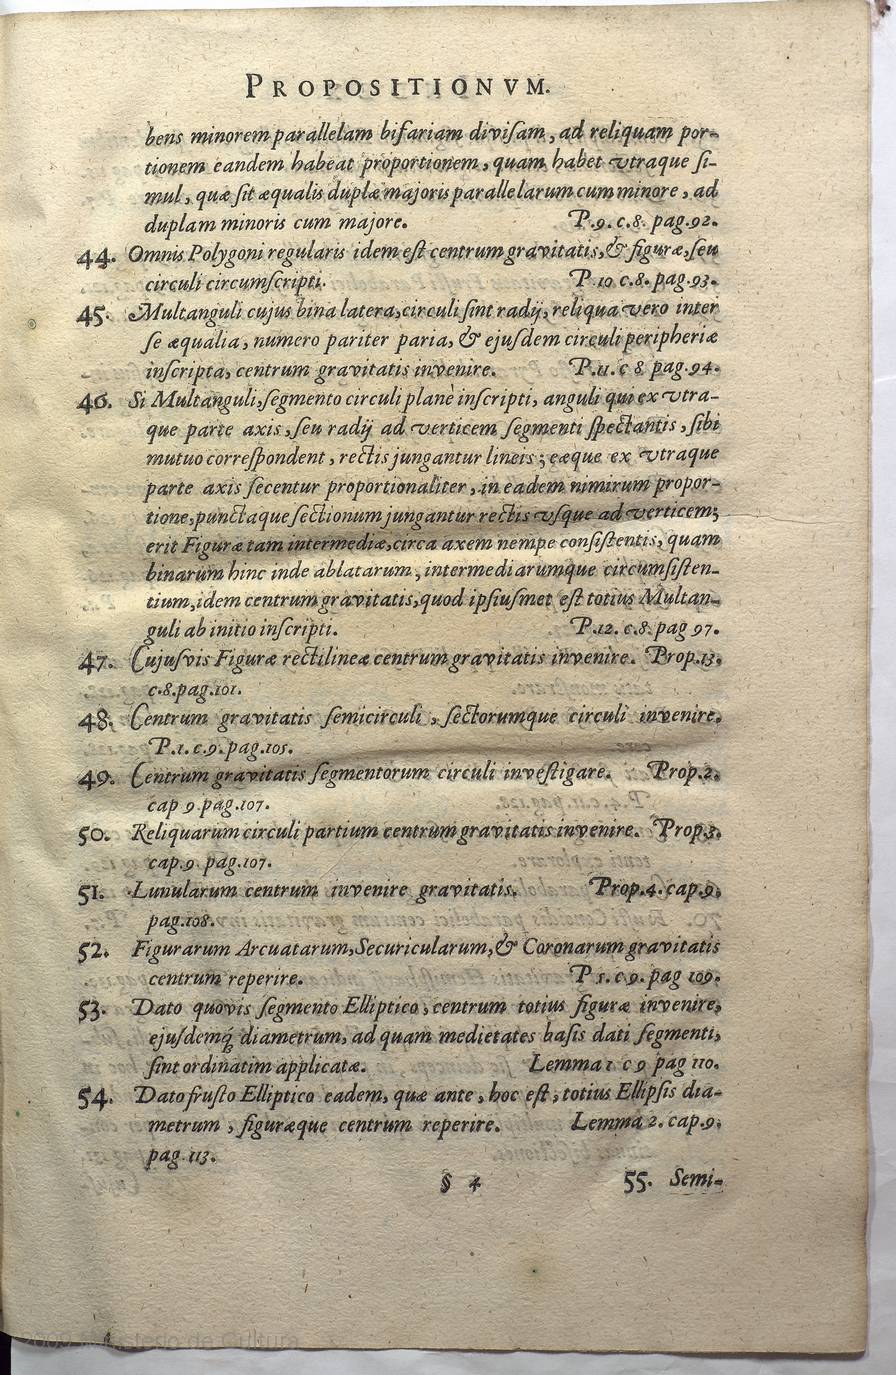 PROPOSITIONVM.
bens minorem parallelam bifariam divisam, ad reliquam por-
tionem eandem habeat proportionem, quam habet vtraque si-
mul, quæ sit æqualis duplæ majoris parallelarum cum minore, ad
duplam minoris cum majore. P.9. c.8. pag.92.
44. Omnis Polygoni regularis idem est centrum gravitatis, & figuræ, seu
circuli circumscripti. P.10 c.8. pag.93.
45. Multanguli cujus bina latera, circuli sint radij, reliqua vero inter
se æqualia, numero pariter paria, & ejusdem circuli peripheriæ
inscripta, centrum gravitatis invenire. P.11. c 8 pag.94.
46. Si Multanguli, segmento circuli planè inscripti, anguli qui ex vtra-
que parte axis, seu radij ad verticem segmenti spectantis, sibi
mutuo correspondent, rectis jungantur lineis; eæque ex vtraque
parte axis secentur proportionaliter, in eadem nimirum propor-
tione, punctaque sectionum jungantur rectis vsque ad verticem;
erit Figuræ tam intermediæ, circa axem nempe consistentis, quam
binarum hinc inde ablatarum, intermediarumque circumsisten-
tium, idem centrum gravitatis, quod ipsiusmet est totius Multan-
guli ab initio inscripti. P.12. c.8. pag 97.
47. Cujusvis Figuræ rectilineæ centrum gravitatis invenire. Prop.13.
c.8.pag.101.
48. Centrum gravitatis semicirculi, sectorumque circuli invenire.
P.1. c.9. pag.105.
49. Centrum gravitatis segmentorum circuli investigare. Prop.2.
cap 9.pag.107.
50. Reliquarum circuli partium centrum gravitatis invenire. Prop.3.
cap.9. pag.107.
51. Lunularum centrum invenire gravitatis. Prop.4. cap.9.
pag.108.
52. Figurarum Arcuatarum, Securicularum, & Coronarum gravitatis
centrum reperire. P 5. c 9. pag 109.
53. Dato quovis segmento Elliptico, centrum totius figuræ invenire,
ejusdemq́; diametrum, ad quam medietates basis dati segmenti,
sint ordinatim applicatæ. Lemma 1 c 9 pag 110.
54. Dato frusto Elliptico eadem, quæ ante, hoc est, totius Ellipsis dia-
metrum, figuræque centrum reperire. Lemma 2. cap.9.
pag.113.
§ 4 55. Semi-
2009 Ministerio de Cultura